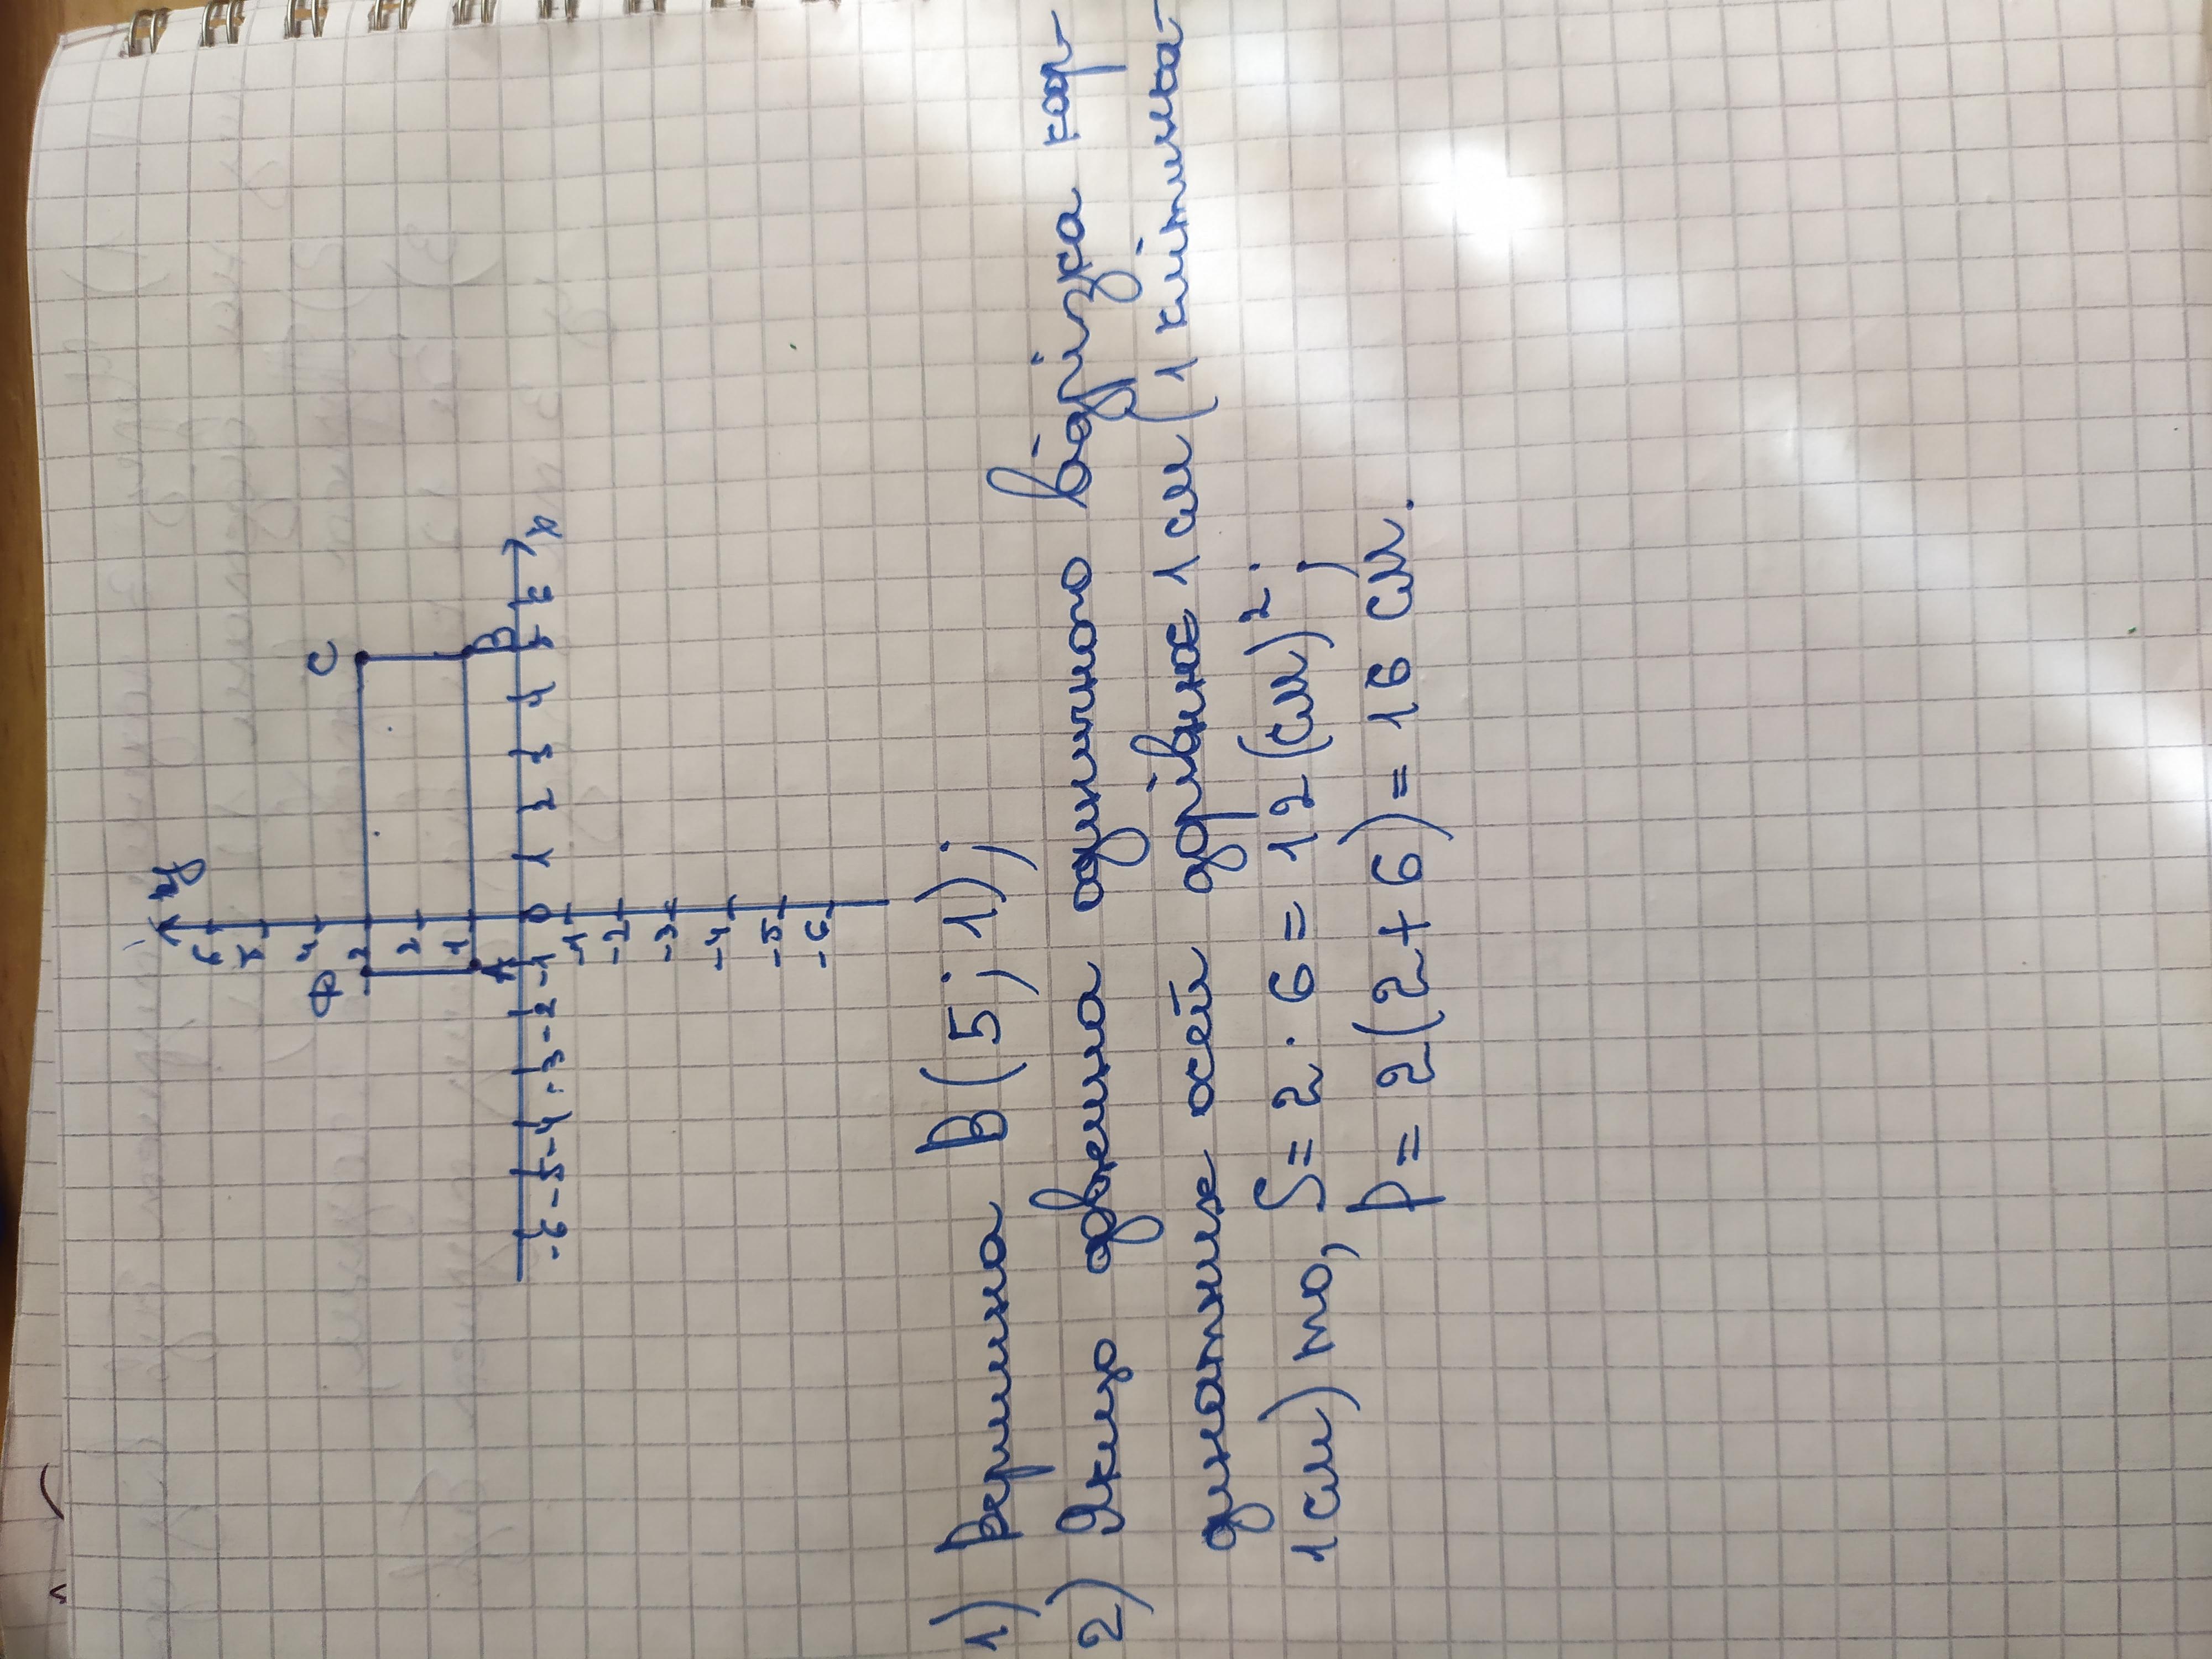 y
6
5
4
D 3 C
2
1
A B
-6 -5 -4 -3 -2 -1 0 1 2 3 4 5 6 x
-1
-2
-3
-4
-5
-6
1) Вершина В(5; 1);
2) Якщо довжина одиничного відрізка коор-
динатних осей дорівнює 1 см (1 клітинка-
1 см) то, S = 2 · 6 = 12 (см)²;
P = 2(2+6) = 16 см.